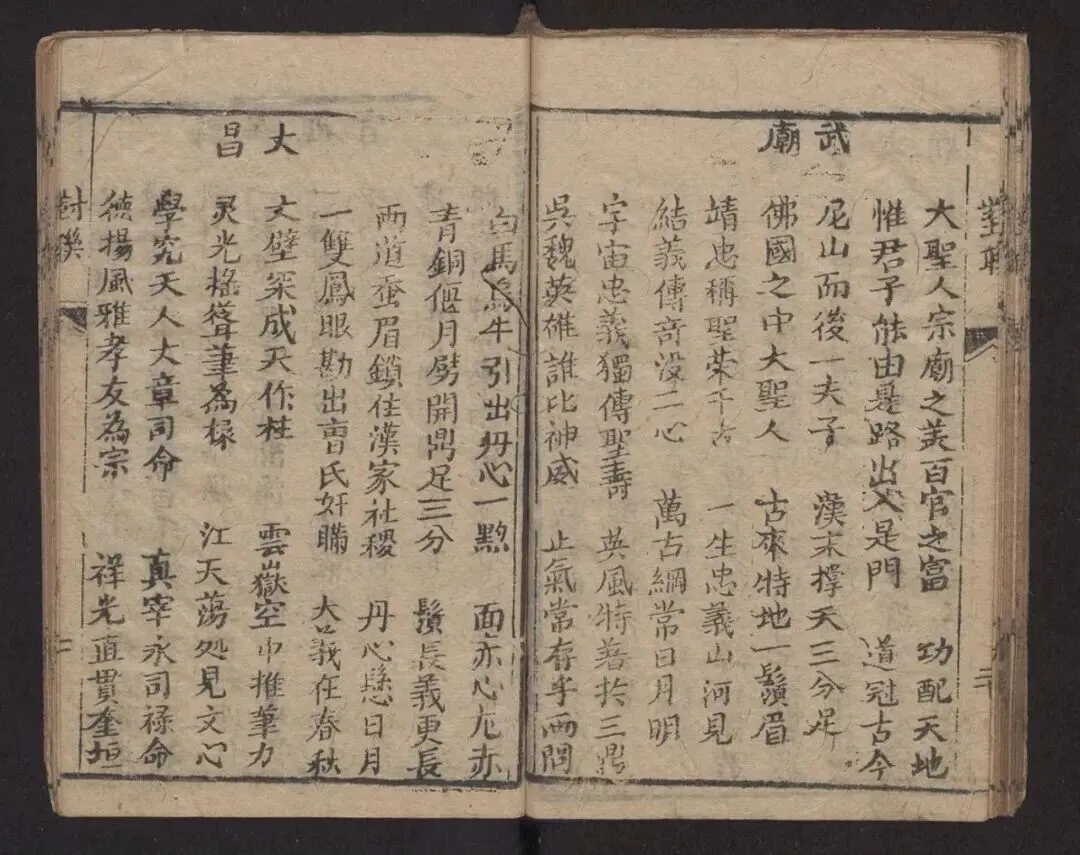 對聯
大聖人宗廟之美百官之富 功配天地
惟君子能由是路出入是門 道冠古今
武廟
尼山而後一夫子 漢末撑天三分足
佛國之中大聖人 古來特地一鬚眉
靖忠稱聖榮千古 一生忠義山河見
結義傳奇没二心 萬古綱常日月明
宇宙忠義獨傳聖壽 英風特著扵三鼎
吳魏英雄誰比神威 正氣常存乎兩間
白馬烏牛引出丹心一點 面赤心尤赤
青銅偃月劈開鼎足三分 鬚長義更長
両道蚕眉鎖住漢家社稷 丹心懸日月
一雙鳳眼勘出曹氏奸瞞 大義在春秋
文昌
文壁穼成天作柱 雲山嶽空中推筆力
灵光搖聳筆為椽 江天蕩処見文心
學究天人大章司命 真宰永司禄命
德揚風雅孝友為宗 祥光直貫奎垣
對聯